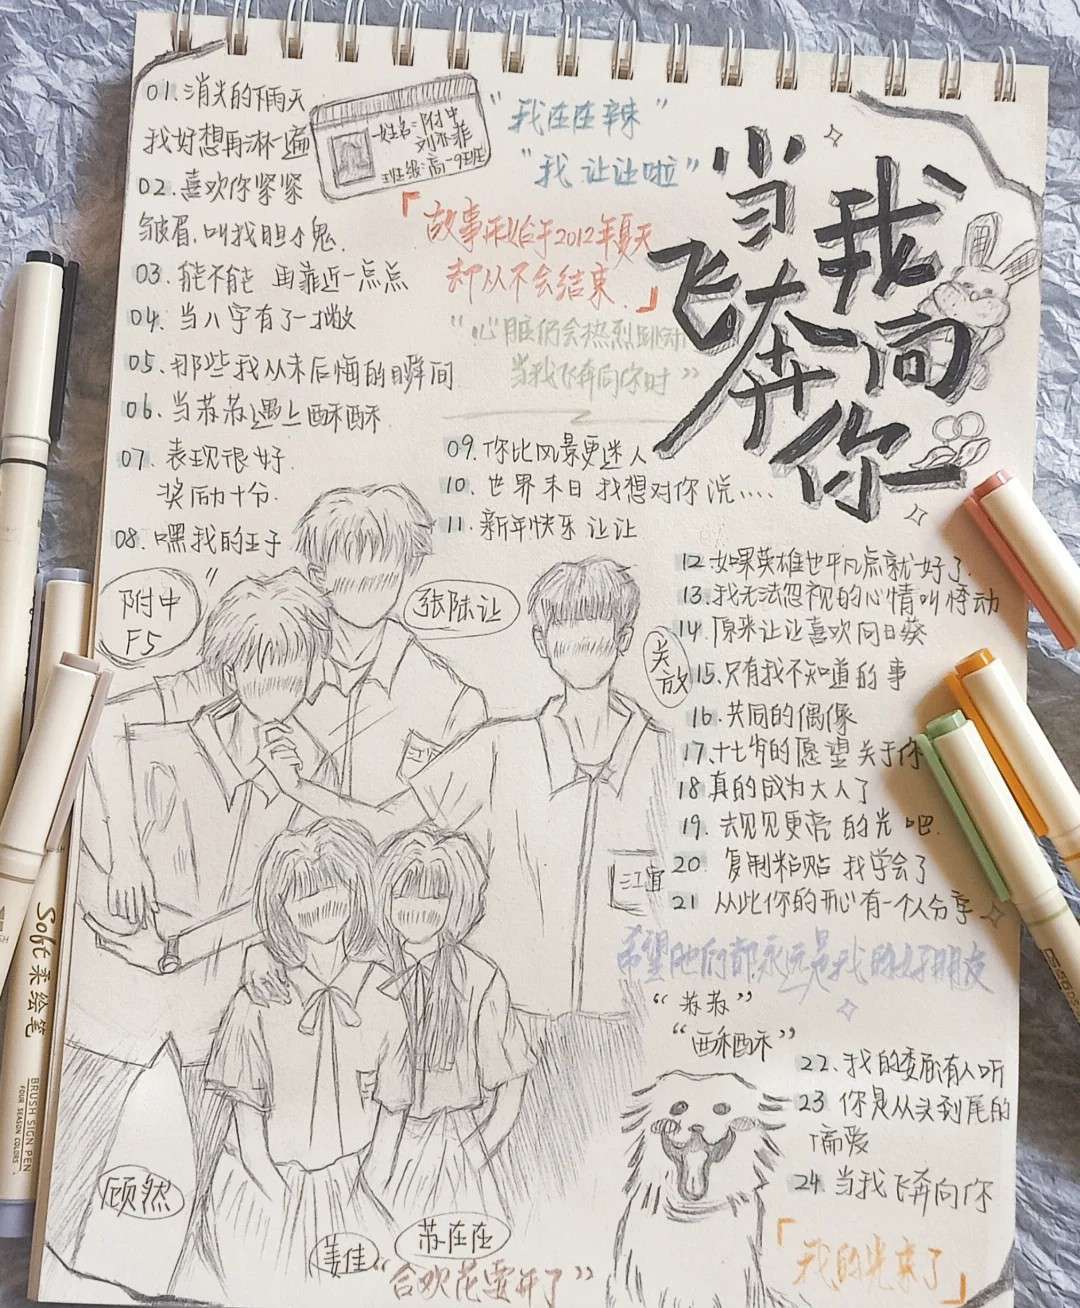 01.消失的下雨天
我好想再淋一遍
02.喜欢你紧紧
皱眉,叫我胆小鬼.
03.能不能 再靠近一点点
04.当八字有了一撇
05.那些我从未后悔的瞬间
06.当苏苏遇上酥酥
07.表现很好.
奖励十分.
08.嘿我的王子
姓名:附中
刘亦菲
班级:高一9班
“我在在辣”
“我 让让啦”
「故事开始于2012年夏天
却从不会结束.」
“心脏仍会热烈跳动
当我飞奔向你时”
当我
飞奔向
你
09.你比风景更迷人
10.世界末日 我想对你说....
11.新年快乐 让让
附中
F5
张陆让
关
放
12如果英雄也平凡点就好了.
13.我无法忽视的心情叫悸动
14.原来让让喜欢向日葵
15.只有我不知道的事
16.共同的偶像
17.十七岁的愿望关于你
18真的成为大人了
19.去见见更亮的光吧.
20 复制粘贴 我学会了
21 从此你的开心有一个人分享
江宜
希望他们都永远是我的好朋友
“苏苏”
“酥酥”
22.我的委屈有人听
23 你是从头到尾的
偏爱
24.当我飞奔向你
「我的光来了」
顾然
姜佳
苏在在
“合欢花要开了”
Soft 柔绘笔
BRUSH SIGN PEN
FOUR SEASON COLORS